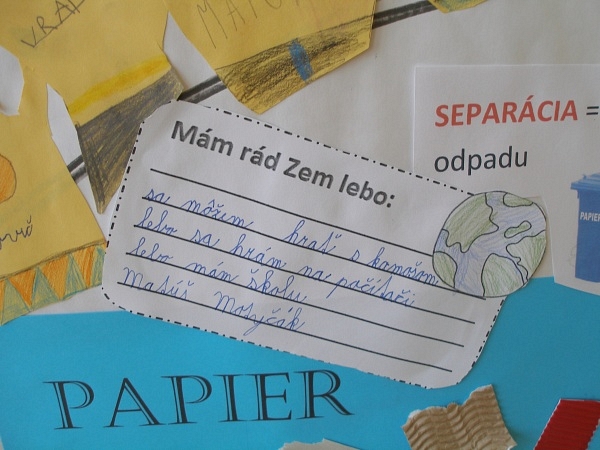 VRA
MATÚ
SEPARÁCIA =
odpadu
PAPIER
Mám rád Zem lebo:
sa môžem hrať s kamošom
lebo sa hrám na počítači
lebo mám školu
Matúš Motyčák
PAPIER